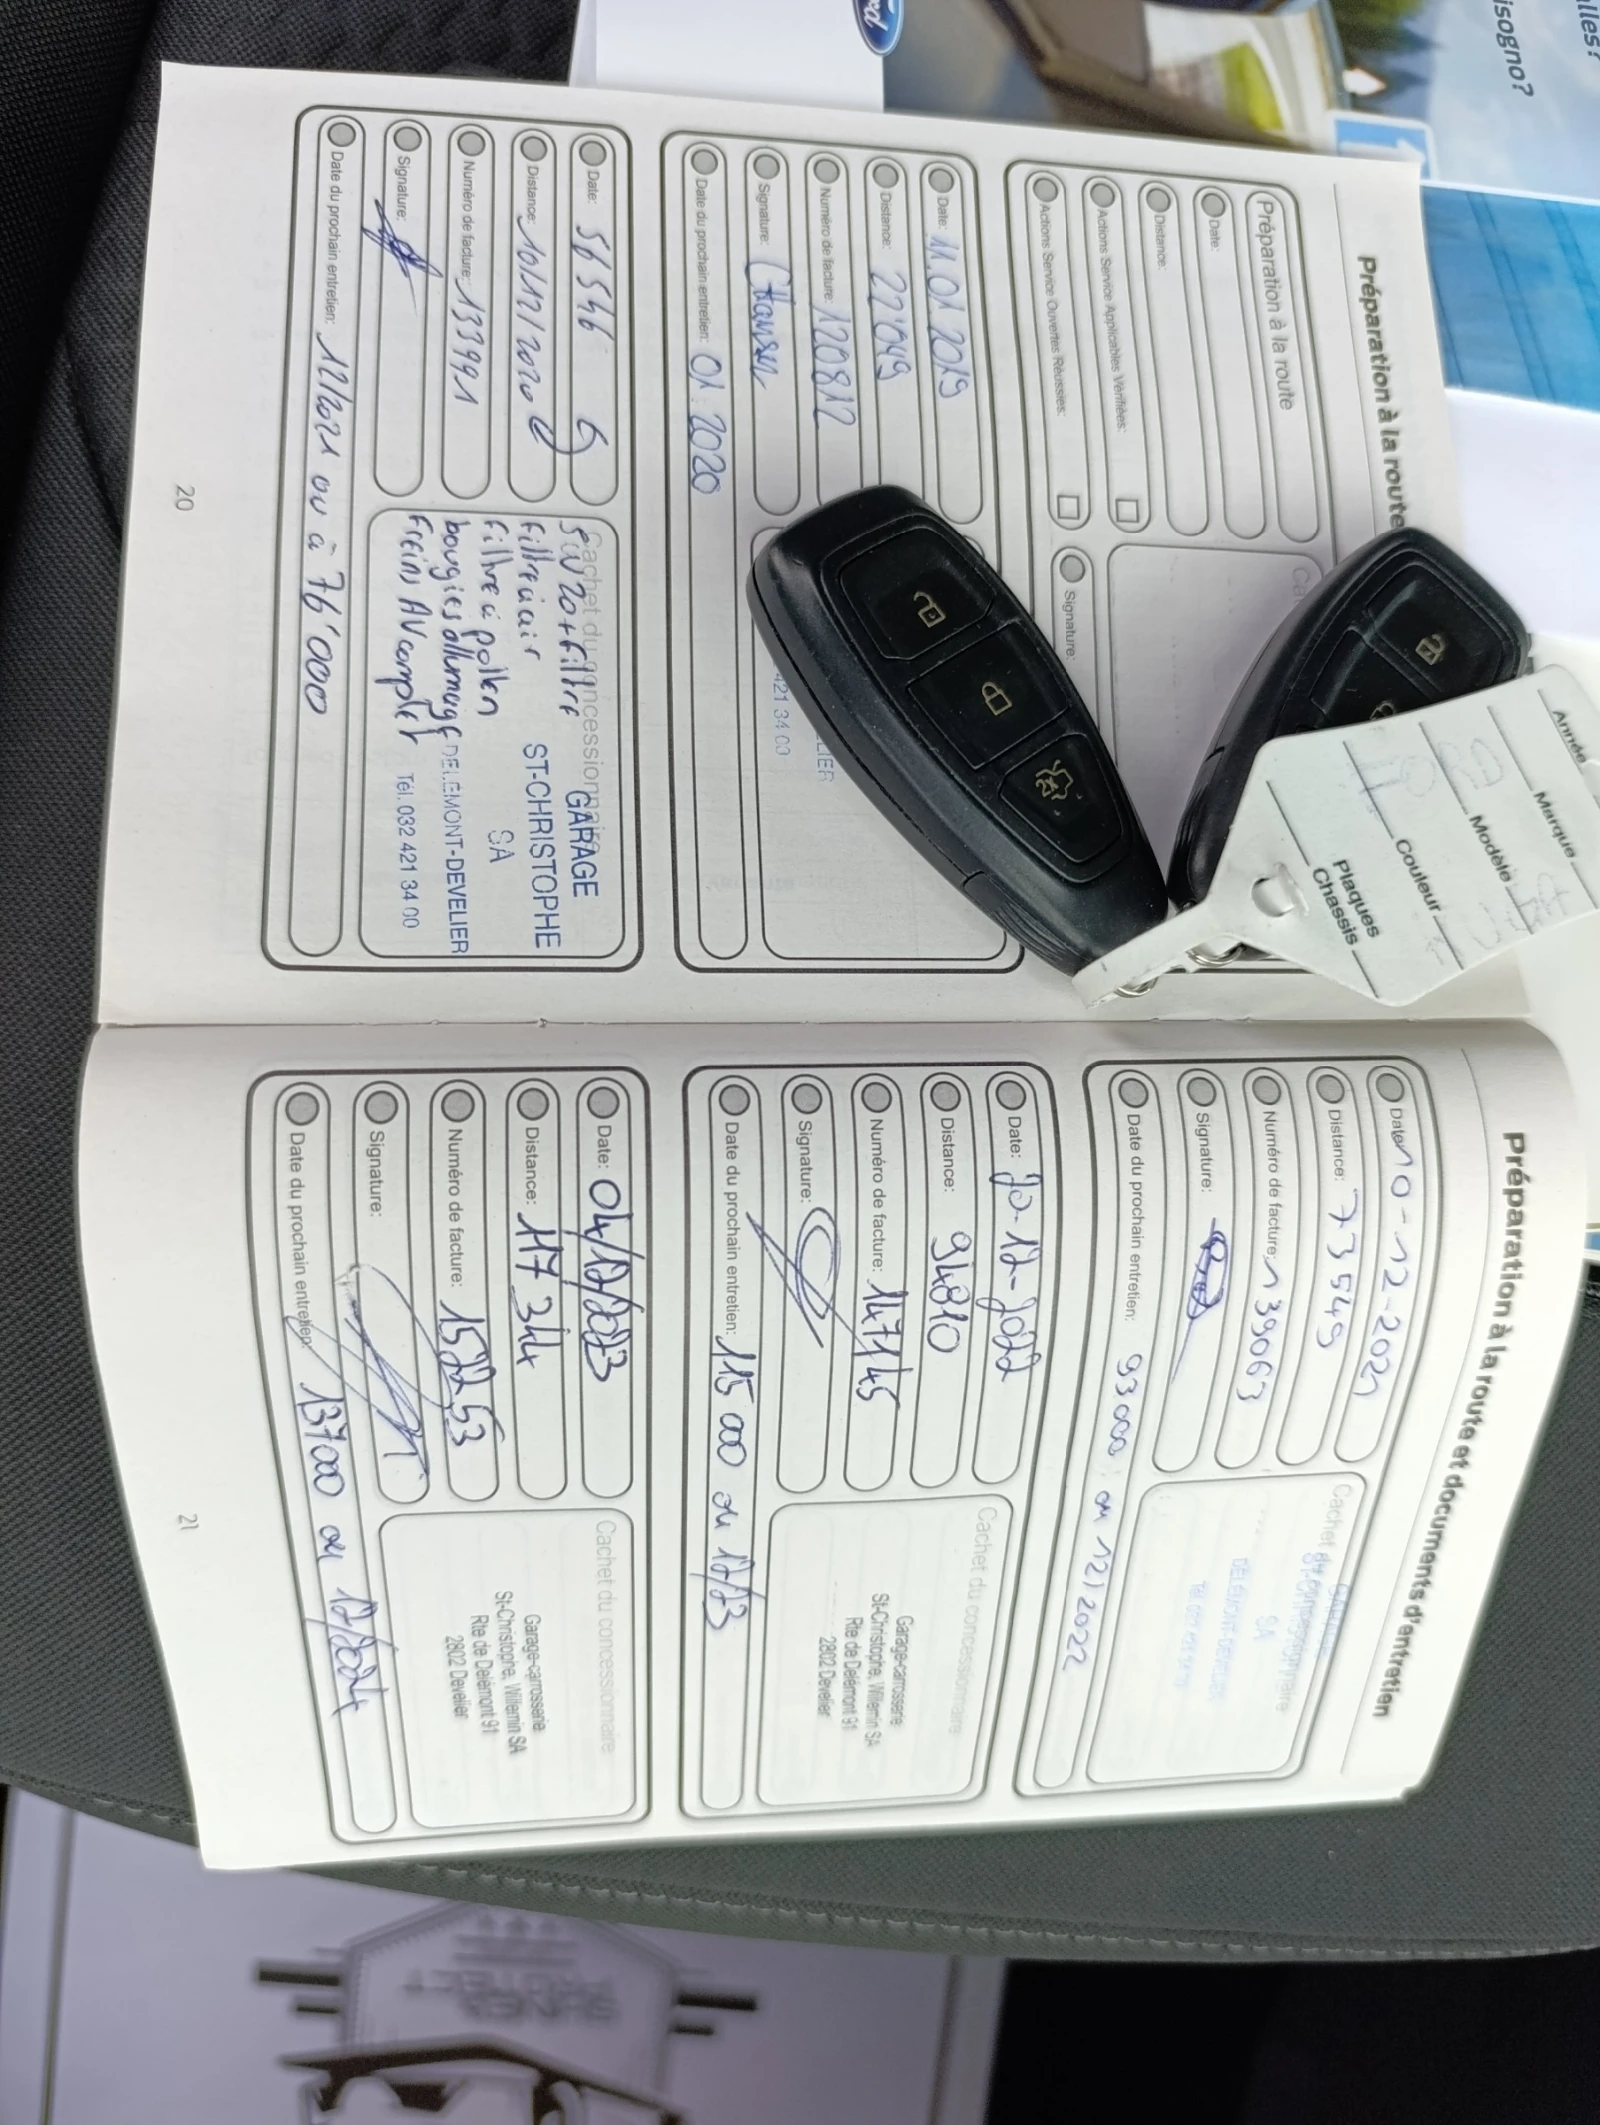 alles?
isogno?
Ford
Préparation à la route
Préparation à la route
Date:
Distance:
Actions Service Applicables Vérifiées:
Actions Service Ouvertes Réussies:
Signature:
Date: 11.01.2019
Distance: 22'049
Numéro de facture: 120812
Signature:
Date du prochain entretien: 01.2020
ELIER
421 34 00
Date: 56 546
Distance: 10/12/2020
Numéro de facture: 133991
Signature:
Date du prochain entretien: 12/2021 ou à 76'000
Cachet du concessionnaire
5W20+filtre
filtre à air
filtre à pollen
bougies allumage
freins AV complet
GARAGE
ST-CHRISTOPHE
SA
DELEMONT-DEVELIER
Tél. 032 421 34 00
20
Année
Marque
Modèle
Couleur
Plaques
Chassis
Préparation à la route et documents d'entretien
Date: 10-12-2021
Distance: 73549
Numéro de facture: 139063
Signature:
Date du prochain entretien: 93000 ou 12/2022
Cachet du concessionnaire
SA
DELEMONT-DEVELIER
Date: 20-12-2022
Distance: 94810
Numéro de facture: 147145
Signature:
Date du prochain entretien: 115 000 ou 12/23
Cachet du concessionnaire
Garage-carrosserie
St-Christophe, Willemin SA
Rte de Delémont 91
2802 Develier
Date: 04/12/2023
Distance: 117 344
Numéro de facture: 152253
Signature:
Date du prochain entretien: 137000 ou 12/2024
Cachet du concessionnaire
Garage-carrosserie
St-Christophe, Willemin SA
Rte de Delémont 91
2802 Develier
21